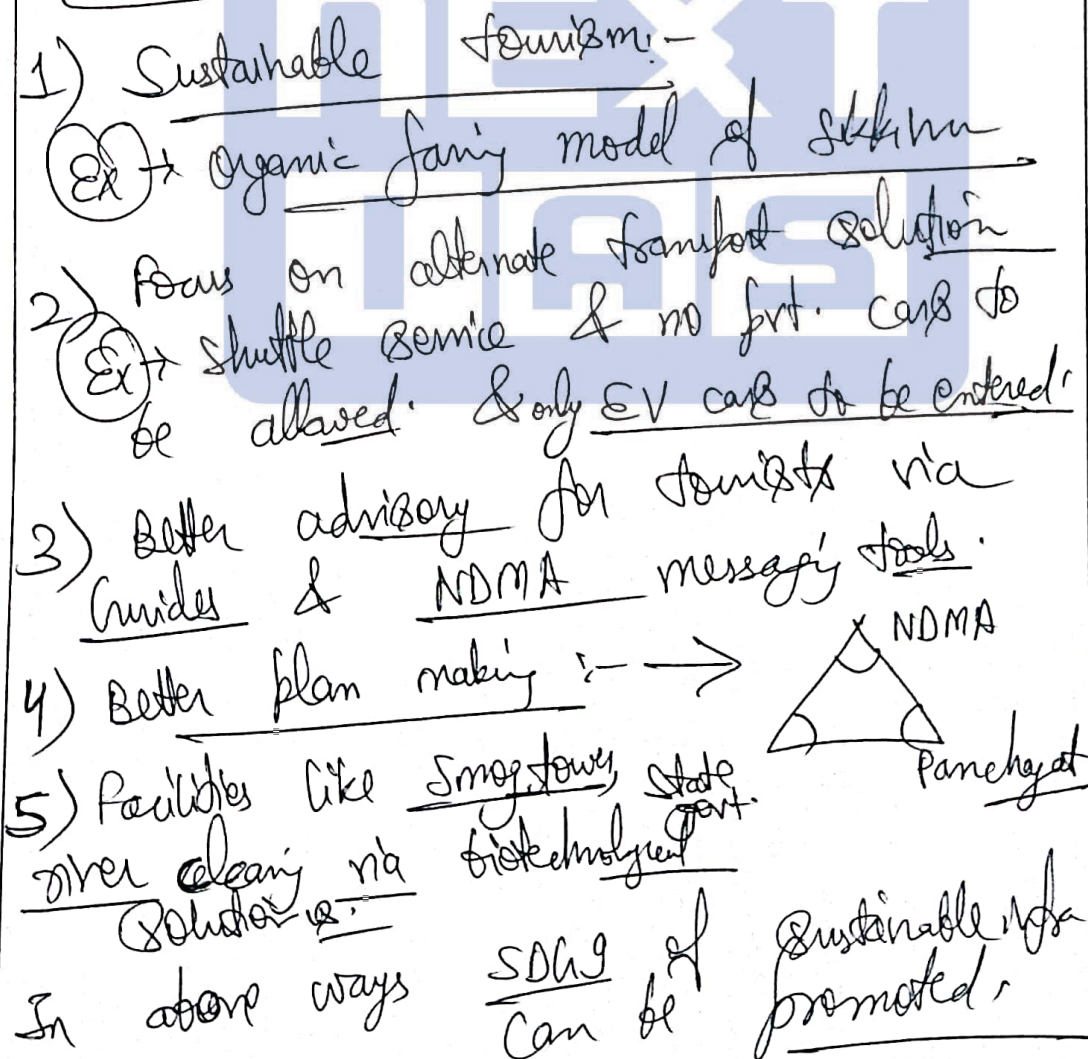 NEXT
IAS
1) Sustainable tourism:-
Ex → Organic faming model of Sikkim
2) Focus on alternate transport solution
Ex → Shuttle service & no pvt. cars to
be allowed. & only EV cars to be entered.
3) Better advisory for tourists via
Guides & NDMA messaging tools.
4) Better plan making :- → NDMA
state govt. Panchayat
5) Facilities like Smog towers,
river cleaning via biotechnological
solutions.
In above ways SDG 9 of sustainable infra
can be promoted.